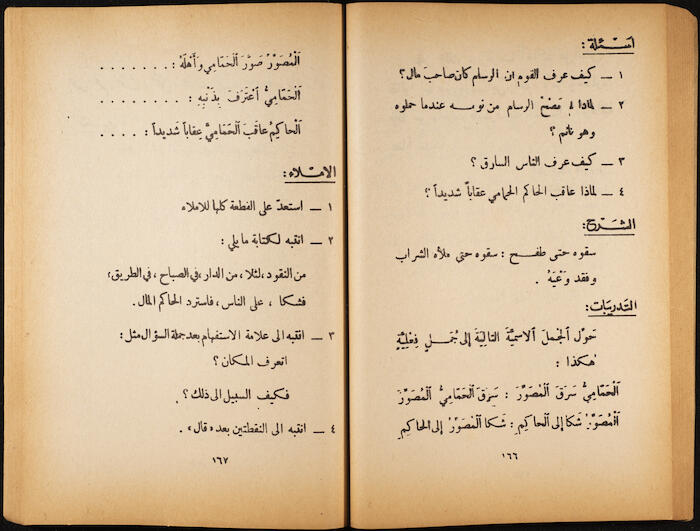 أسئلة :
١ — كيف عرف القوم ان الرسام كان صاحب مال؟
٢ — لماذا لم يصحُ الرسام من نومه عندما حملوه
وهو نائم ؟
٣ — كيف عرف الناس السارق ؟
٤ — لماذا عاقب الحاكم الحمامي عقاباً شديداً ؟
الشرح :
سقوه حتى طفح : سقوه حتى ملأه الشراب
وفقد وَعْيَهُ .
التدريبات :
حَوِّل اَلجُملَ الاسميَّةَ التاليَةَ إلى جُمَلٍ فِعْليَّةٍ
هكذا :
اَلحَمَّاميُّ سَرَقَ اَلْمُصَوِّرَ : سَرَقَ اَلحَمَّاميُّ اَلْمُصَوِّرَ
اَلْمُصَوِّرُ شَكا إلى اَلْحاكِمِ : شَكا اَلْمُصَوِّرُ إلى اَلحاكِمِ
١٦٦
اَلْمُصَوِّرُ صَوَّرَ اَلْحَمَّاميَّ وَأَهْلَهُ : . . . . . . .
اَلحَمَّاميُّ اَعْتَرَفَ بِذَنْبِهِ : . . . . . . .
اَلْحاكِمُ عاقَبَ اَلْحَمَّاميَّ عِقاباً شَديداً : . . . .
الاملاء :
١ — استعدّ على القطعة كلها للاملاء
٢ — انتبه لكتابة ما يلي :
من النقود ، لئلا ، من الدار ، في الصباح ، في الطريق ،
فشكا ، على الناس ، فاسترد الحاكم المال .
٣ — انتبه الى علامة الاستفهام بعد جملة السؤال مثل :
اتعرف المكان ؟
فكيف السبيل الى ذلك ؟
٤ — انتبه الى النقطتين بعد « قال » .
١٦٧